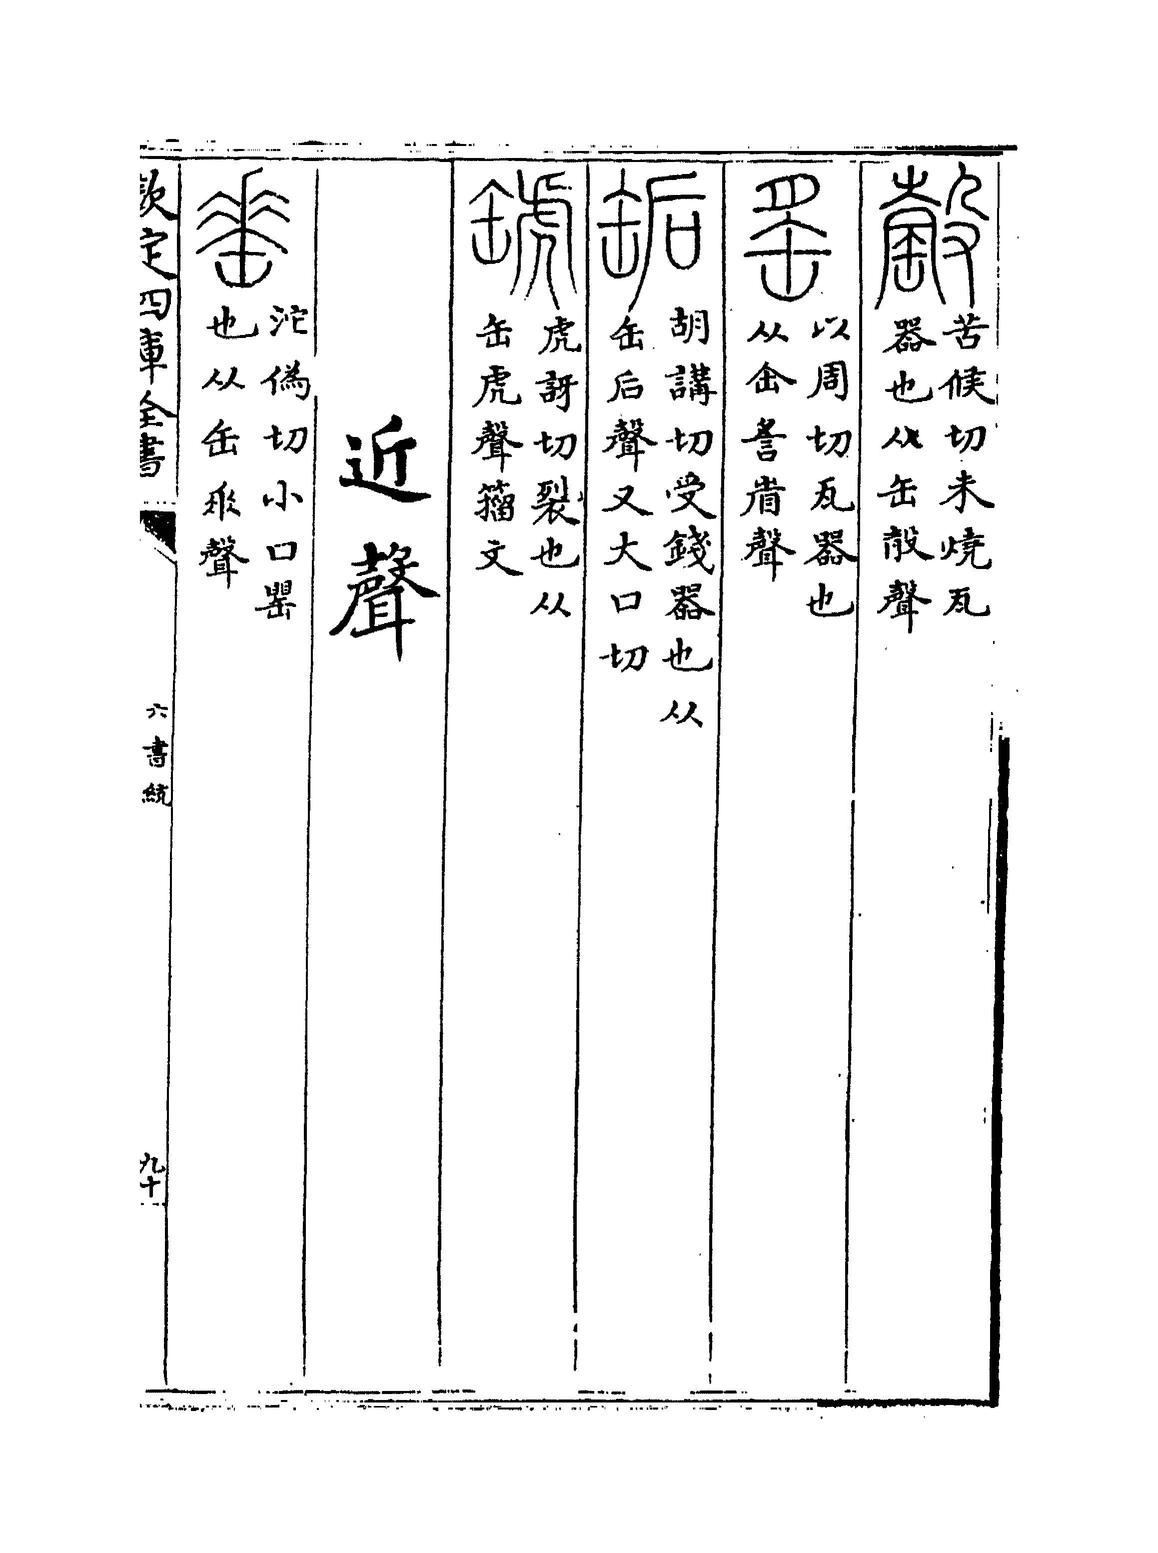 苦候切未燒瓦
器也从缶㱿聲
䍃
以周切瓦器也
从缶䚻省聲
缿
胡講切受錢器也从
缶后聲又大口切
虎訝切裂也从
缶虎聲籀文
近聲
沱偽切小口罌
也从缶𠂹聲
欽定四庫全書
六書統
九十